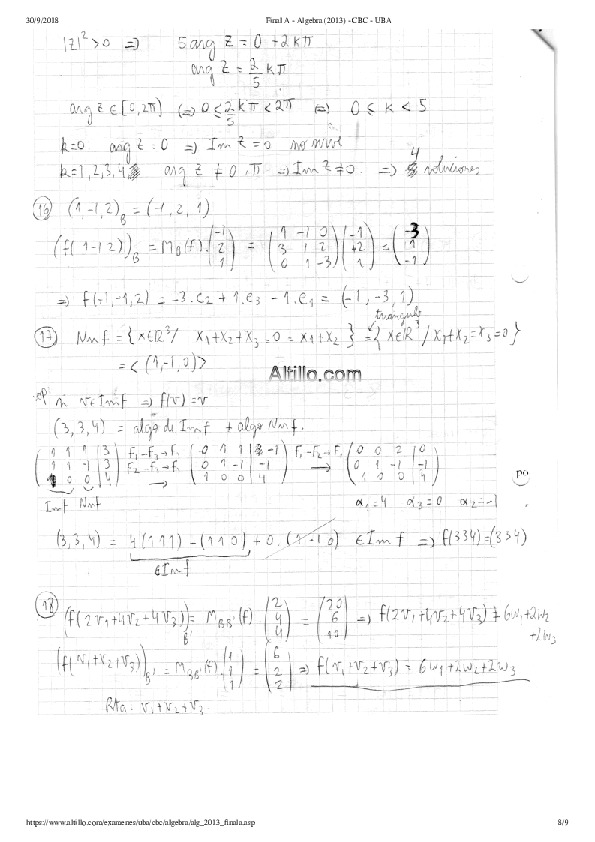 30/9/2018 Final A - Algebra (2013) - CBC - UBA
|z|² > 0 ⇒ 5 arg z = 0 + 2kπ
arg z = 2/5 kπ
arg z ∈ [0, 2π) ⇔ 0 ≤ 2/5 kπ < 2π ⇔ 0 ≤ k < 5
k=0 arg z = 0 ⇒ Im z = 0 no sirve
k=1,2,3,4 arg z ≠ 0, π ⇒ Im z ≠ 0 ⇒ 4 soluciones
16) (1,-1,2)_B = (-1, 2, 1)
(f(1,-1,2))_B = M_B(f) · (-1 2 1) = (1 -1 0 / 3 1 2 / 0 1 -3) (-1 +2 1) = (-3 1 -1)
⇒ f(-1,-1,2) = -3·e2 + 1·e3 - 1·e1 = (-1, -3, 1)
17) Nu f = {x∈ℝ³ / x1+x2+x3 = 0 = x1+x2} = {x∈ℝ³ / x1+x2=x3=0}
triangulo
= <(1,-1,0)>
Altillo.com
si v∈Im f ⇒ f(v) = v
(3,3,4) = algo de Im f + algo Nu f.
(1 1 1 | 3 / 1 1 -1 | 3 / 1 0 0 | 4) F1-F3→F1 F2-F3→F2 (0 1 1 | -1 / 0 1 -1 | -1 / 1 0 0 | 4) F1-F2→F1 (0 0 2 | 0 / 0 1 -1 | -1 / 1 0 0 | 4)
Imf Nuf α1=4 α3=0 α2=-1
(3,3,4) = 4(111) - (110) + 0·(1-10) ∈ Im f ⇒ f(334) = (334)
∈ Imf
18) (f(2v1+4v2+4v3))_B' = M_BB'(f) (2 4 4) = (20 6 10) ⇒ f(2v1+4v2+4v3) ≠ 6w1+2w2
+2w3
(f(v1+v2+v3))_B' = M_BB'(f) (1 1 1) = (6 2 2) ⇒ f(v1+v2+v3) = 6w1+2w2+2w3
Rta: v1+v2+v3
https://www.altillo.com/examenes/uba/cbc/algebra/alg_2013_finala.asp 8/9